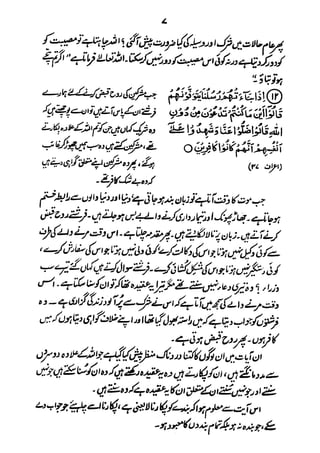 ۷
پھر عام حالات میں شرک اور وسیلہ کی کیا ضرورت پیش آگئی؟ اللہ چاہتا ہے تو مصیبت کو
دور کر دیتا ہے ورنہ کوئی اس مصیبت کو دور نہیں کر سکتا۔ اللہ تعالیٰ فرماتا ہے "اگر سچے
ہو تو بتاؤ"۔
(۱۳) إِذَا جَاءَتْهُمْ رُسُلُنَا يَتَوَفَّوْنَهُمْ
قَالُوٓا أَيْنَ مَا كُنْتُمْ تَدْعُونَ مِنْ دُونِ
اللّٰهِ قَالُوا ضَلُّوا عَنَّا وَشَهِدُوا عَلٰٓى
أَنْفُسِهِمْ أَنَّهُمْ كَانُوا كَافِرِينَ ○
(اعراف ۳۷)
جب مشرکین کی روح قبض کرنے کے لیے ہمارے
فرشتے ان کے پاس آتے ہیں تو ان سے پوچھتے ہیں کہ
وہ شریک کہاں ہیں جن کو تم اللہ کے علاوہ پکارتے
تھے، مشرکین کہتے ہیں وہ سب ہمیں چھوڑ کر غائب
ہو گئے، پھر وہ مشرکین اپنے متعلق گواہی دیتے ہیں
کہ وہ بے شک کافر تھے۔
جب موت کا وقت آتا ہے تو زبان بند ہو جاتی ہے، دنیا اور دنیا والوں سے رابطہ ختم
ہو جاتا ہے۔ جھاڑ پھونک اور تیمارداری کرنے والے بے بس ہو جاتے ہیں۔ فرشتے روح قبض
کرنے آتے ہیں۔ زبان پر تالا لگا دیتے ہیں۔ پھر مقدمہ چلتا ہے۔ اس وقت مرنے والے کی طرف
سے کوئی وکیل نہیں ہوتا جو اس کی وکالت کرے کوئی ولی نہیں ہوتا جو اس کی سفارش کرے،
کوئی دستگیر نہیں ہوتا جو اس کی مشکل کشائی کرے۔ فرشتے سوال کرتے ہیں کہاں گئے تیرے سب
وزراء؟ وہ تیری دعا نہیں سنتے تھے مگر تیرا عقیدہ تھا کہ تو ان کو سنا سکتا ہے۔ اس
وقت مرنے والے کی سمجھ میں آتا ہے کہ اس نے شرک سے پُر آلود زندگی گزاری ہے۔ وہ
فرشتوں کو جواب دیتا ہے کہ میں راستہ بھول گیا تھا اور اپنے خلاف گواہی دیتا ہوں کہ میں
کافر ہوں۔ پھر روح قبض ہوتی ہے۔
ان آیات میں ان لوگوں کا کتنا دردناک منظر پیش کیا گیا ہے جو اللہ کے علاوہ دوسروں
سے مدد مانگتے ہیں، ان کو پکارتے ہیں وہ یہ عقیدہ رکھتے ہیں کہ وہ ان کو سنا سکتے ہیں جو نہیں
سنتے اور جو نہیں سنتے ان کے متعلق ان کا یہ عقیدہ ہے کہ وہ سنتے ہیں۔
اس آیت سے معلوم ہوا کہ بندے کو پکارنا لا یعنی ہے، پکارنا اسے چاہیے جو جواب دے
سکے، جو بندہ نہ ہو بلکہ تمام بندوں کا معبود ہو۔